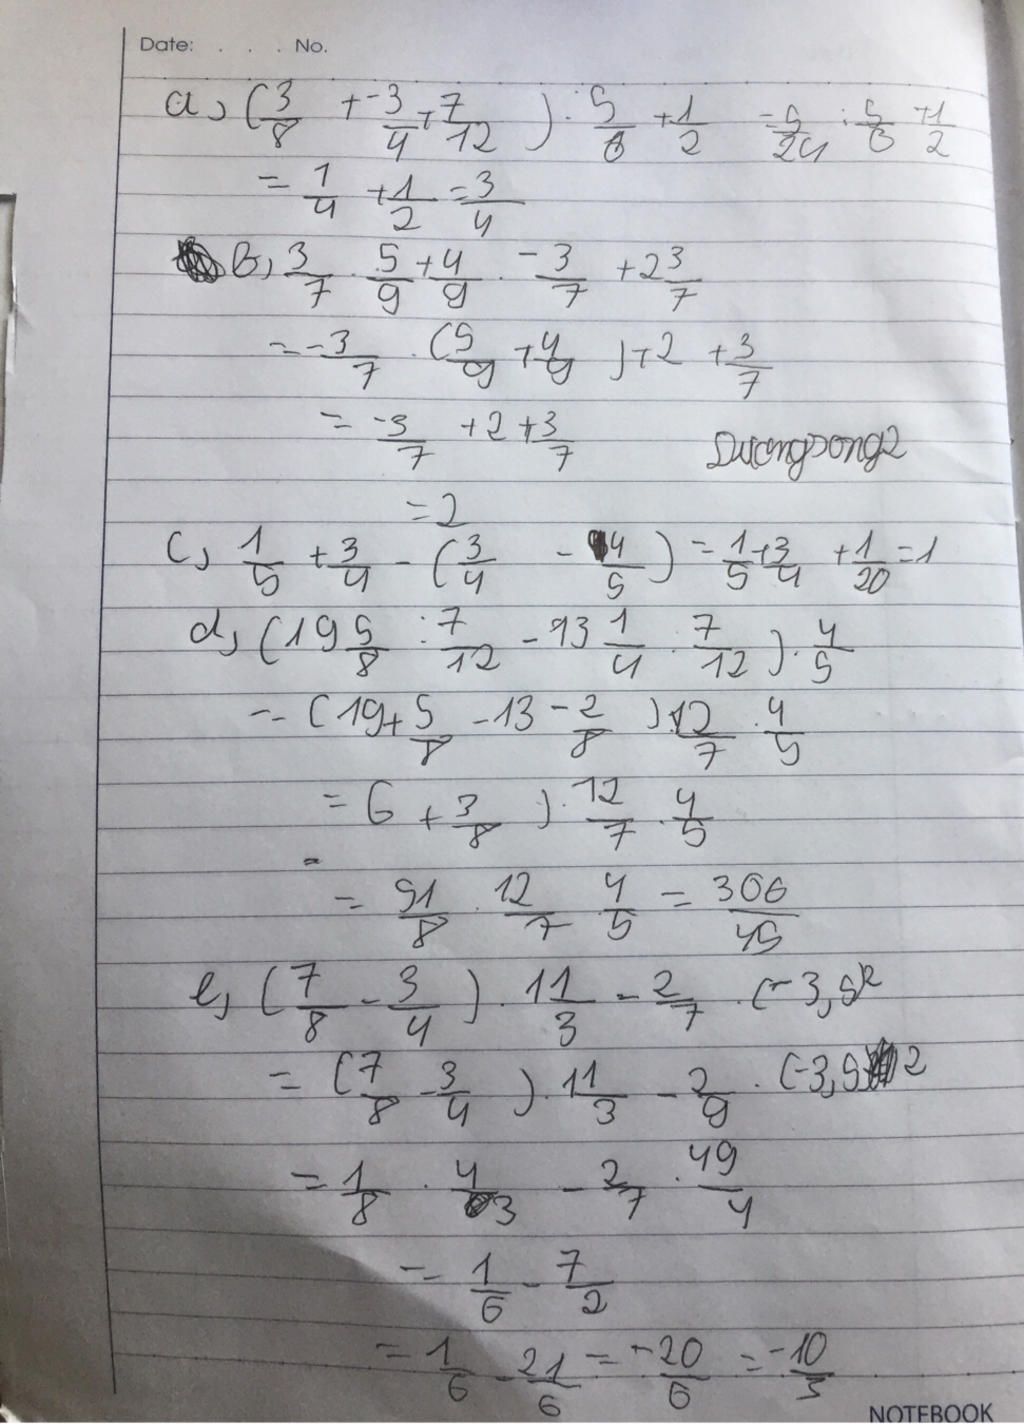 Date: . . . No.
a, (3/8 + -3/4 + 7/12) : 5/6 + 1/2 = 5/24 : 5/6 + 1/2
= 1/4 + 1/2 = 3/4
b, 3/7 . 5/9 + 4/9 . -3/7 + 2 3/7
= -3/7 . (5/9 + 4/9) + 2 + 3/7
= -3/7 + 2 + 3/7
Duongsong2
= 2
c, 1/5 + 3/4 - (3/4 - 4/5) = 1/5 + 3/4 + 1/20 = 1
d, (19 5/8 : 7/12 - 13 1/4 . 7/12) . 4/5
= (19 + 5/8 - 13 - 2/8) . 12/7 . 4/5
= 6 + 3/8) . 12/7 . 4/5
= 51/8 . 12/7 4/5 = 306/45
e, (7/8 - 3/4) . 11/3 - 2/7 . (-3,5)2
= (7/8 - 3/4) . 11/3 - 2/9 . (-3,5 2
= 1/8 . 4/3 - 2/7 . 49/4
= 1/6 - 7/2
= 1/6 - 21/6 = -20/6 = -10/3
NOTEBOOK